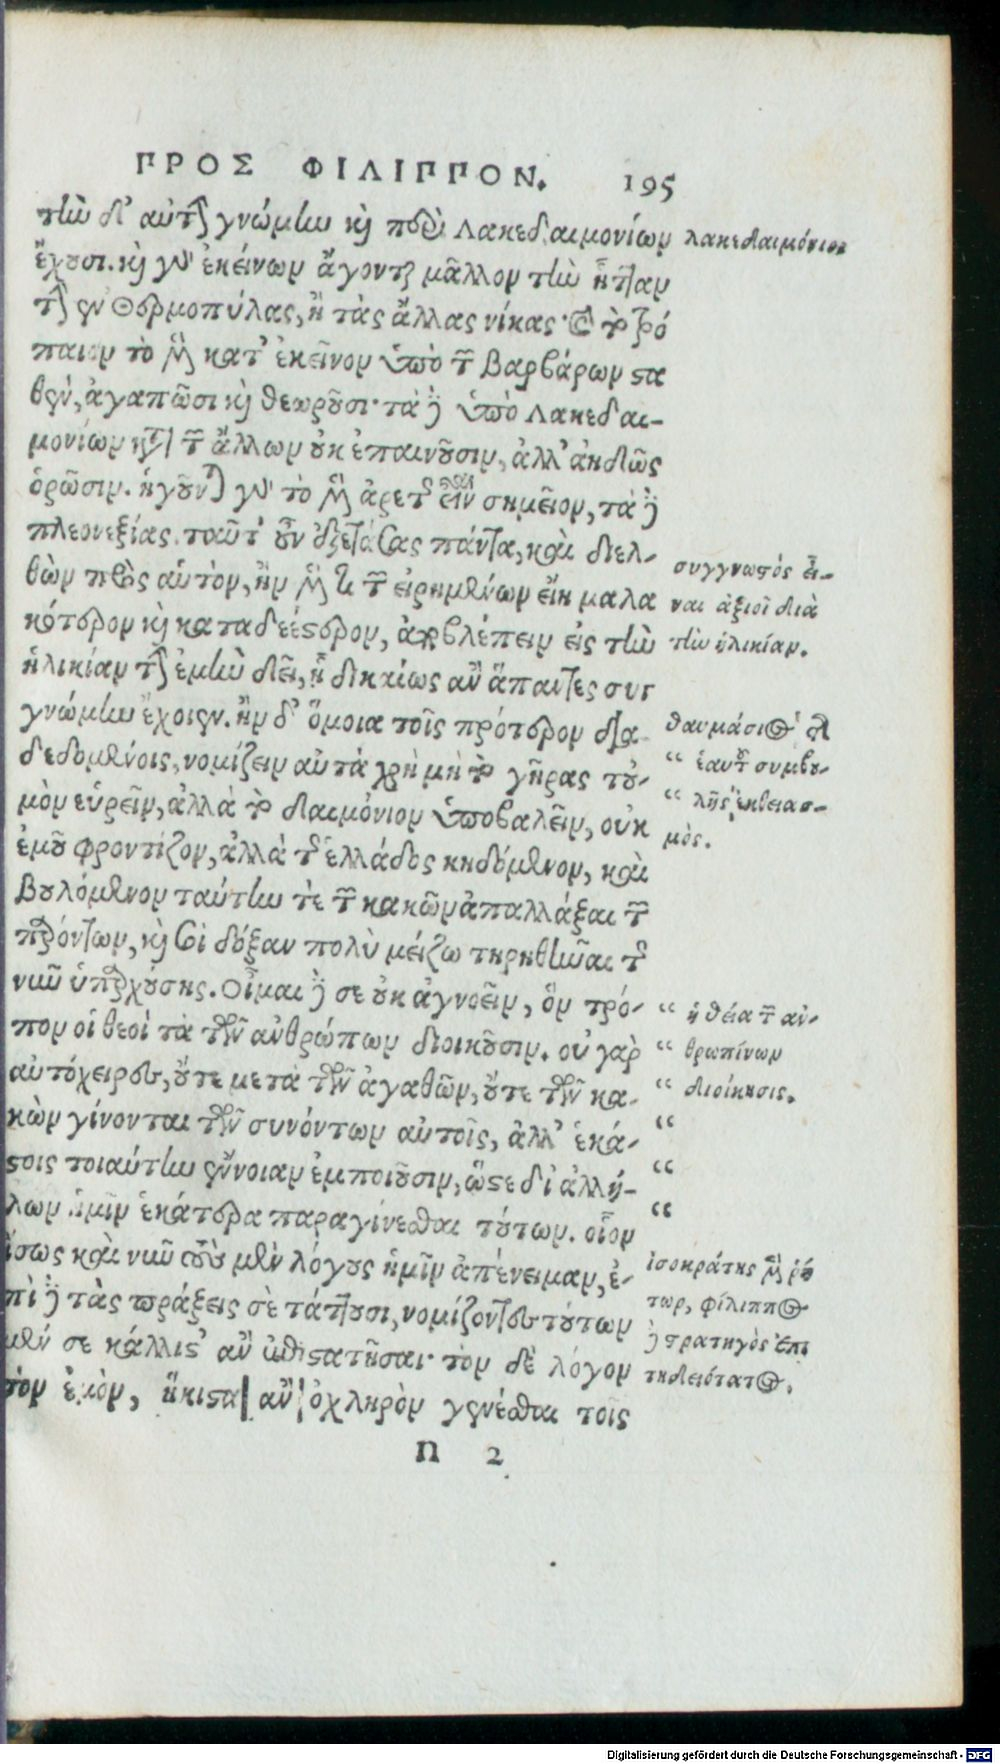 ΠΡΟΣ ΦΙΛΙΠΠΟΝ. 195
τὴν δ' αὐτὴν γνώμην καὶ περὶ Λακεδαιμονίων
ἔχουσι. καὶ γὰρ ἐκείνων ἄγονται μᾶλλον τὴν ἧτταν
τὴν ἐν Θερμοπύλαις, ἢ τὰς ἄλλας νίκας· καὶ τὸ τρό
παιον τὸ μὲν κατ' ἐκεῖνον ὑπὸ τῶν βαρβάρων στα
θὲν, ἀγαπῶσι καὶ θεωροῦσι· τὰ δὲ ὑπὸ Λακεδαι-
μονίων κατὰ τῶν ἄλλων οὐκ ἐπαινοῦσιν, ἀλλ' ἀηδῶς
ὁρῶσιν. ἡγοῦνται γὰρ τὸ μὲν ἀρετῆς εἶναι σημεῖον, τὰ δὲ
πλεονεξίας. ταῦτ' οὖν ἐξετάσας πάντα, καὶ διελ-
θὼν πρὸς αὑτὸν, ἢν μέν τι τῶν εἰρημένων εἴη μαλα
κώτερον καὶ καταδεέστερον, ἀποβλέπειν εἰς τὴν
ἡλικίαν τὴν ἐμὴν δεῖ, ᾗ δικαίως ἂν ἅπαντες συγ
γνώμην ἔχοιεν. ἢν δ' ὅμοια τοῖς πρότερον δια
δεδομένοις, νομίζειν αὐτὰ χρὴ μὴ τὸ γῆρας τοὐ-
μὸν εὑρεῖν, ἀλλὰ τὸ δαιμόνιον ὑποβαλεῖν, οὐκ
ἐμοῦ φροντίζον, ἀλλὰ τῆς Ἑλλάδος κηδόμενον, καὶ
βουλόμενον ταύτην τε τῶν κακῶν ἀπαλλάξαι τῶν
παρόντων, καὶ σοὶ δόξαν πολὺ μείζω τηρηθῆναι τῆς
νῦν ὑπαρχούσης. Οἶμαι δέ σε οὐκ ἀγνοεῖν, ὃν τρό-
πον οἱ θεοὶ τὰ τῶν ἀνθρώπων διοικοῦσιν. οὐ γὰρ
αὐτόχειρες, οὔτε μετὰ τῶν ἀγαθῶν, οὔτε τῶν κα-
κῶν γίνονται τῶν συνόντων αὐτοῖς, ἀλλ' ἑκά-
στοις τοιαύτην ἔννοιαν ἐμποιοῦσιν, ὥστε δι' ἀλλή-
λων ἡμῖν ἑκάτερα παραγίνεσθαι τούτων. οἷον
ἴσως καὶ νῦν τοὺς μὲν λόγους ἡμῖν ἀπένειμαν, ἐ-
πὶ δὲ τὰς πράξεις σὲ τάττουσι, νομίζοντες τούτων
μέν σε κάλλιστ' ἂν ἐπιστατῆσαι· τὸν δὲ λόγον
τὸν ἐμὸν, ἥκιστα ἂν ὀχληρὸν γενέσθαι τοῖς
Π 2
λακεδαιμόνιοι
συγγνωστὸς εἶ-
ναι ἀξιοῖ διὰ
τὴν ἡλικίαν.
θαυμάσιος
“ ἑαυτοῦ συμβου-
“ λῆς ἐκθειασ-
μός.
“ ἡ θεία τῶν ἀν-
“ θρωπίνων
“ διοίκησις.
“
“
“
ἰσοκράτης μὲν ῥή
τωρ, φίλιππος
δὲ στρατηγὸς ἐπι
τηδειότατος.
Digitalisierung gefördert durch die Deutsche Forschungsgemeinschaft - DFG